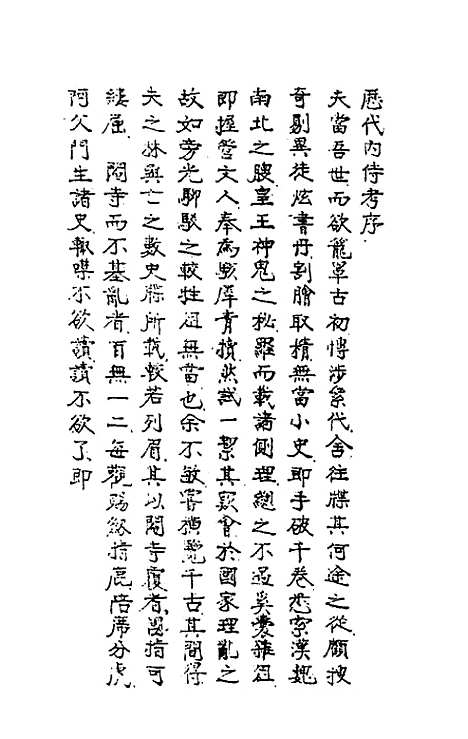 歷代內侍考序
夫當吾世而欲籠罩古初博涉繁代舍往牒其何途之從顧搜
奇剔異徒炫書丹剖膾取擯無當小史即手破千卷悉窮漢魏
南北之朘皇王神鬼之秘羅而載諸側理總之不過奚囊雜俎
即握塹文人奉為戰摩青擯然試一絜其窾會於國家理亂之
故如旁光聊駁之較牲俎無當也余不敏嘗橫覽千古其間得
失之林興亡之數史牒所載較若列眉其以閹寺覆者遏指可
縷屈閹寺而不基亂者百無一二每觀賜緱指鹿陪席分虎
阿父門生諸史輒喋不欲讀讀不欲了即